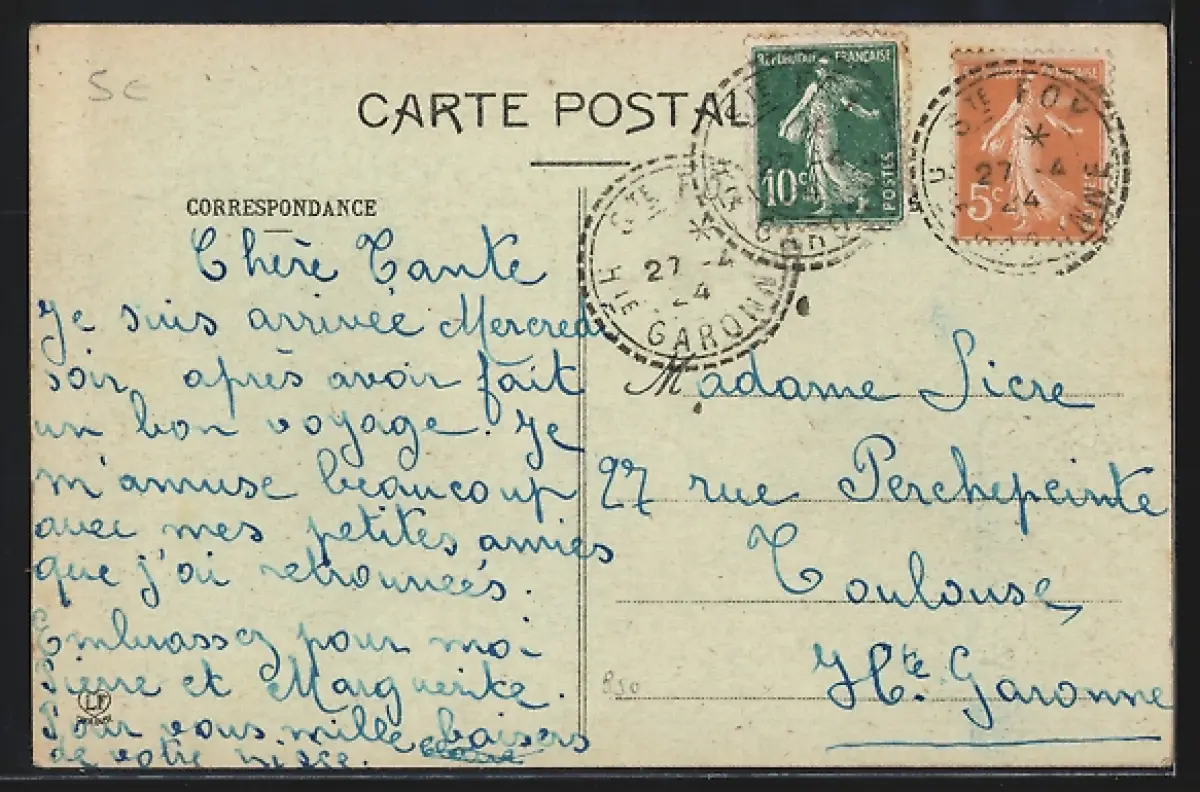 5c
CARTE POSTALE
REPUBLIQUE FRANÇAISE
10c
POSTES
5c
STE FOY
27 -4
24
GARONNE
STE
27 -4
24
HTE GARONNE
CORRESPONDANCE
Chère Tante
Je suis arrivée Mercredi
soir, après avoir fait
un bon voyage. Je
m'amuse beaucoup
avec mes petites amies
que j'ai retrouvées.
Embrassez pour moi
Pierre et Marguerite.
Pour vous mille baisers
de votre nièce.
LF
Madame Sicre
27 rue Perchepeinte
Toulouse
Hte. Garonne
850